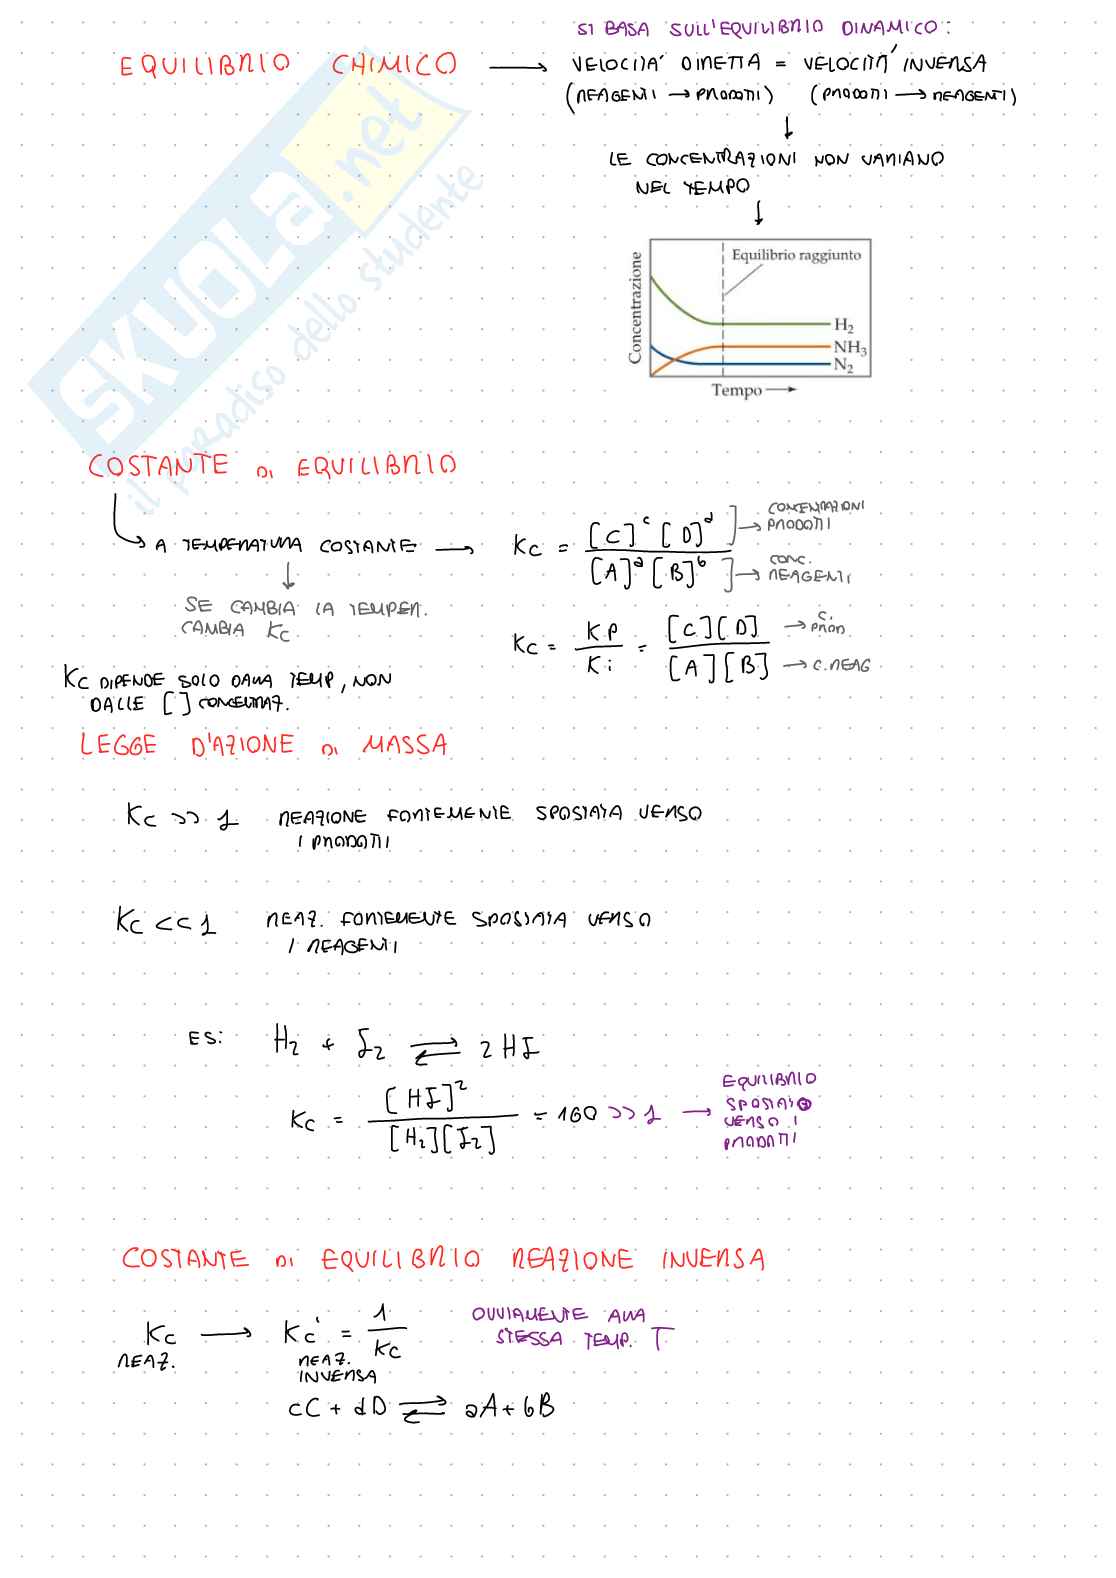 SI BASA SULL'EQUILIBRIO DINAMICO:
EQUILIBRIO CHIMICO → VELOCITA' DIRETTA = VELOCITA' INVERSA
(REAGENTI → PRODOTTI) (PRODOTTI → REAGENTI)
↓
LE CONCENTRAZIONI NON VARIANO
NEL TEMPO
↓
Concentrazione
Equilibrio raggiunto
H₂
NH₃
N₂
Tempo →
SKUOLA.net
il paradiso dello studente
COSTANTE DI EQUILIBRIO
A TEMPERATURA COSTANTE → Kc = [C]ᶜ[D]ᵈ / [A]ᵃ[B]ᵇ
→ CONCENTRAZIONI
PRODOTTI
→ CONC.
REAGENTI
↓
SE CAMBIA LA TEMPER.
CAMBIA Kc
Kc = Kp / Ki = [C][D] / [A][B]
→ C.
PROD.
→ C. REAG
Kc DIPENDE SOLO DALLA TEMP, NON
DALLE [ ] CONCENTRAZ.
LEGGE D'AZIONE DI MASSA
Kc >> 1 REAZIONE FORTEMENTE SPOSTATA VERSO
I PRODOTTI
Kc << 1 REAZ. FORTEMENTE SPOSTATA VERSO
I REAGENTI
ES: H₂ + I₂ ⇌ 2HI
Kc = [HI]² / [H₂][I₂] = 160 >> 1 →
EQUILIBRIO
SPOSTATO
VERSO I
PRODOTTI
COSTANTE DI EQUILIBRIO REAZIONE INVERSA
Kc → Kc' = 1 / Kc
REAZ.
REAZ.
INVERSA
OVVIAMENTE ALLA
STESSA TEMP. T
cC + dD ⇌ aA + bB